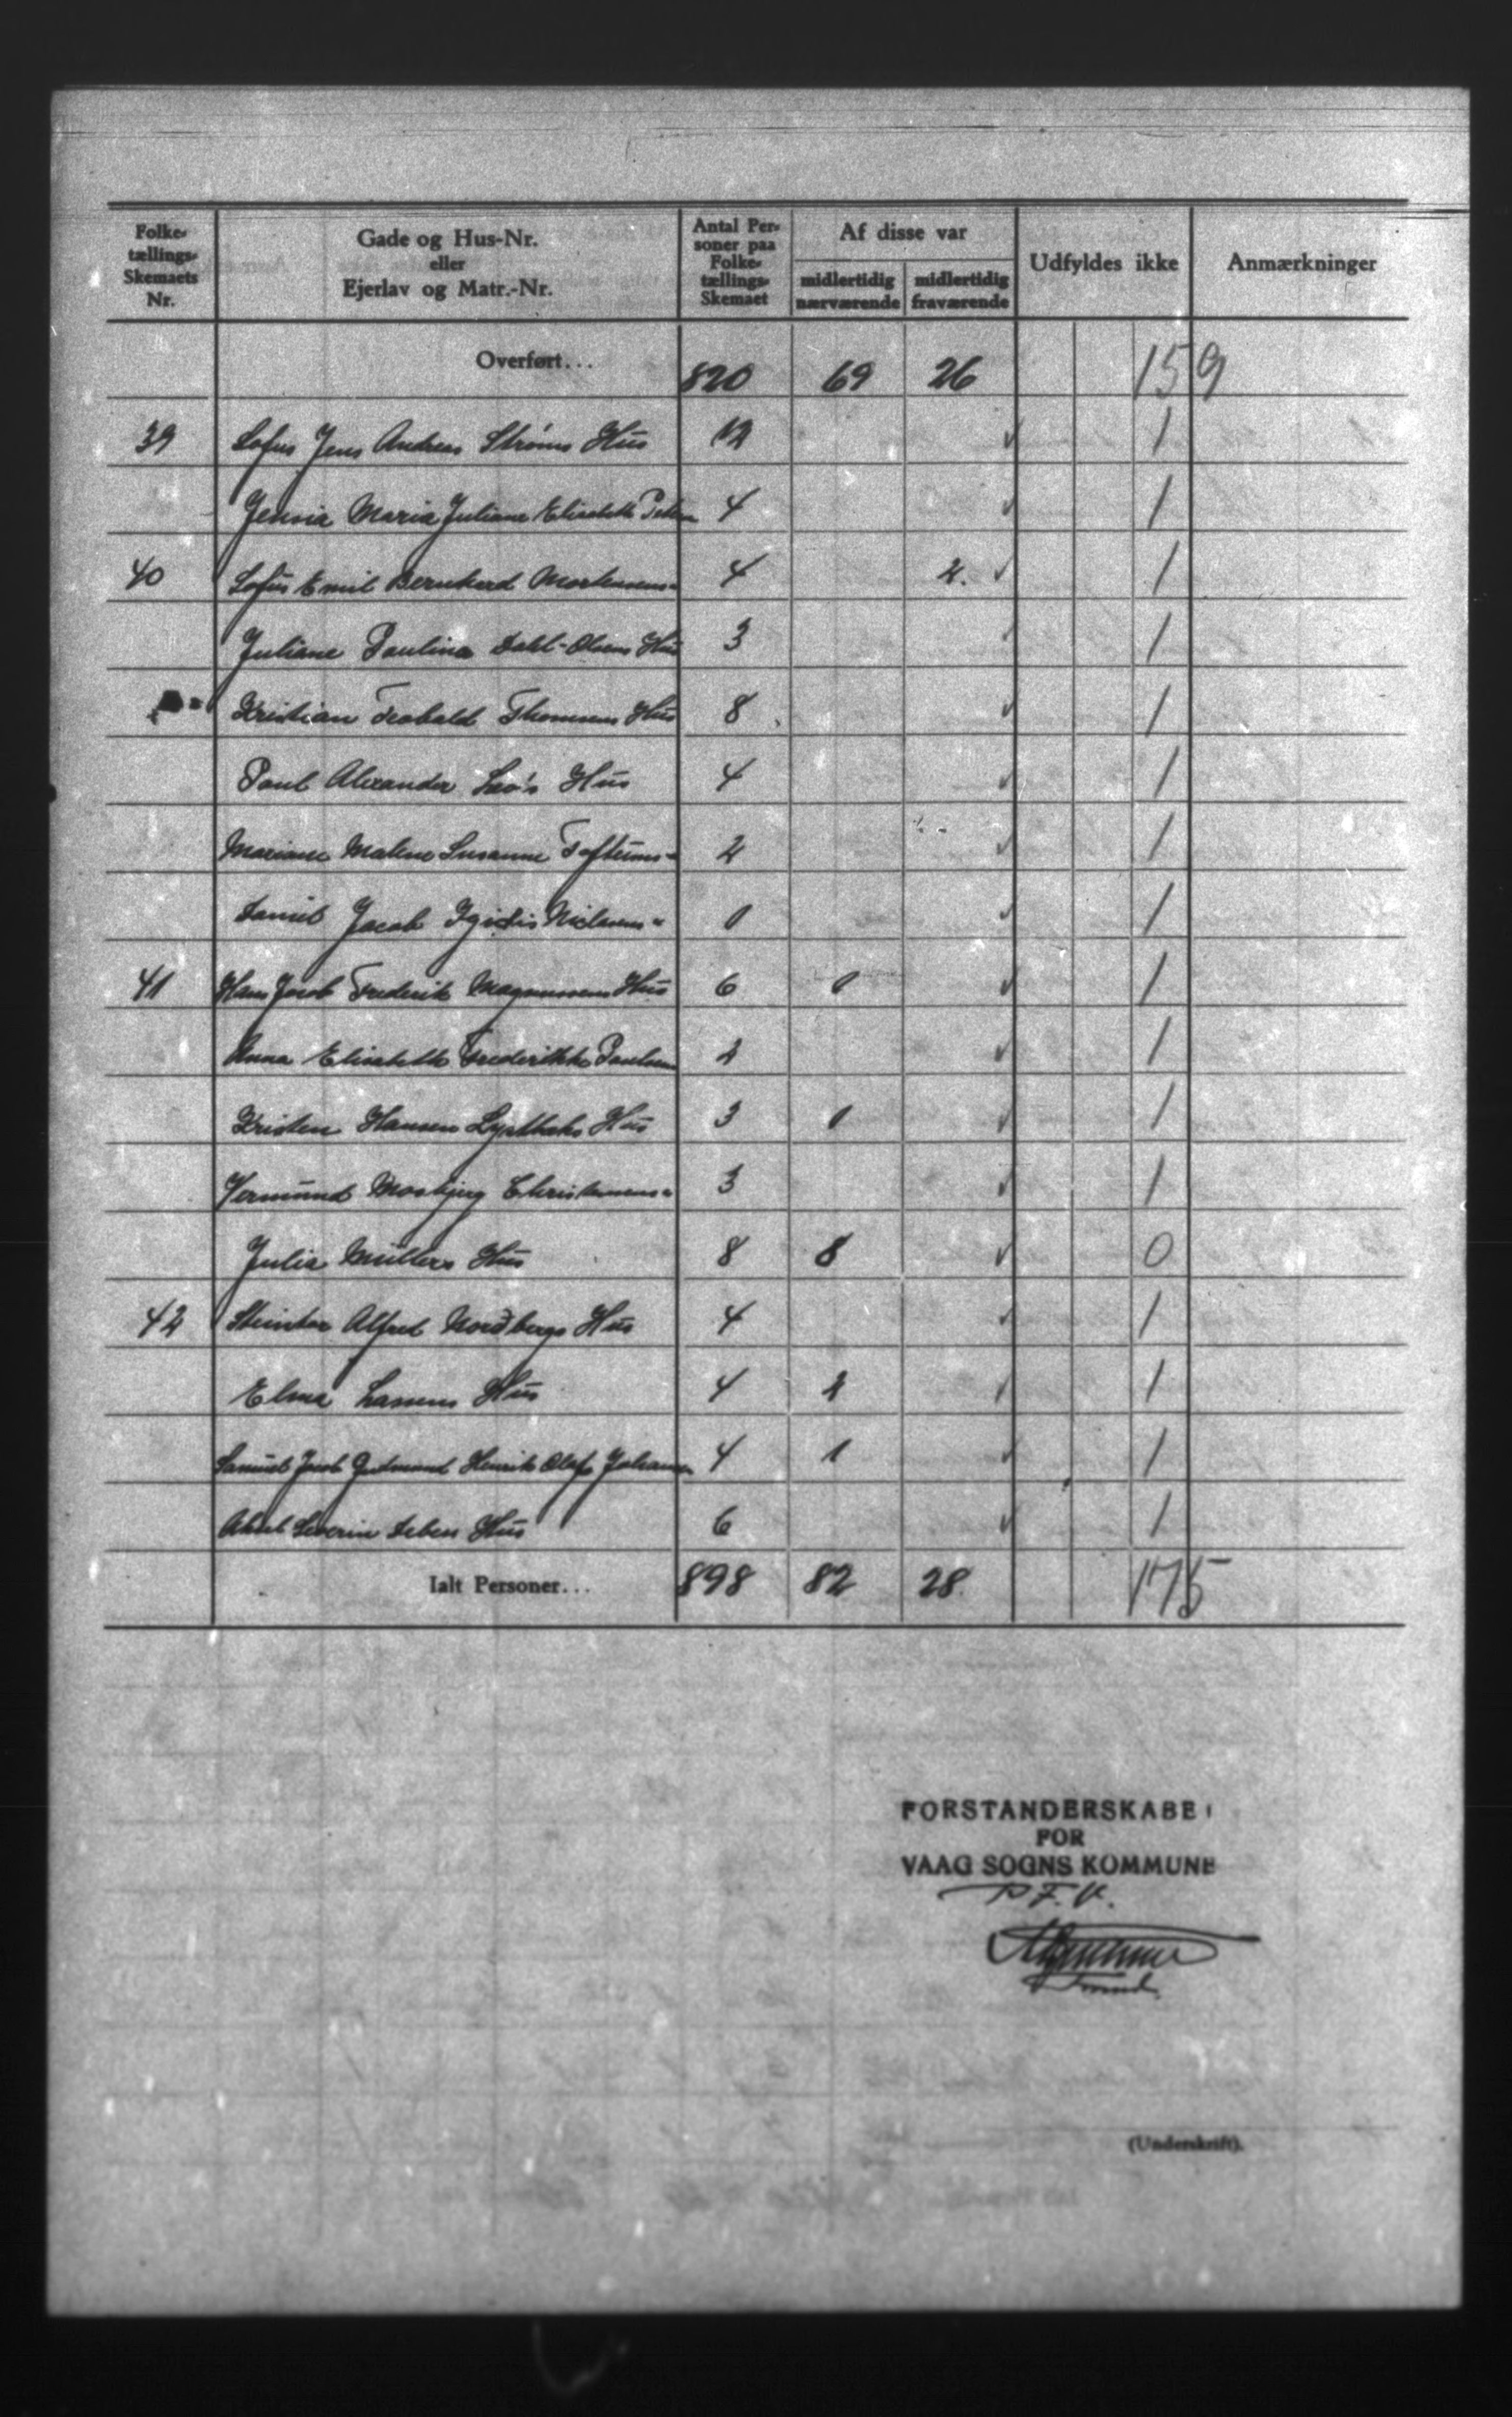 Folke- tællings- Skemaets Nr. | Gade og Hus-Nr. eller Ejerlav og Matr.-Nr. | Antal Per- soner paa Folke- tællings- Skemaet | Af disse var midlertidig nærværende | midlertidig fraværende | Udfyldes ikke | Anmærkninger
Overført... 820 69 26 159
39 Sofus Jens Andreas Strøms Hus 12 ✓ 1
Jensia Maria Juliane Elisabeth 4 ✓ 1
40 Sofus Emil Bernhard Mortensens " 4 2. ✓ 1
Juliane Paulina Dahl-Olsens Hus 3 ✓ 1
Kristian Teobald Thomsens Hus 8 ✓ 1
Poul Alexander Leo's Hus 4 ✓ 1
Mariane Malene Susanne Toftums " 2 ✓ 1
Daniel Jacob Nielsens " 1 ✓ 1
41 Hans Jacob Frederik Magnussens Hus 6 1 ✓ 1
Anna Elisabeth Frederikke Poulsens 2 ✓ 1
Kristen Hansen Hus 3 1 ✓ 1
Vermund Mosbjerg Christensens " 3 ✓ 1
Julia Müllers Hus 8 8 ✓ 0
42 Steintor Alfred Nordbergs Hus 4 ✓ 1
Elma Larsens Hus 4 2 ✓ 1
Samuel Jacob Gudmund Henrik Olaf 4 1 ✓ 1
Severin Hus 6 ✓ 1
Ialt Personer... 898 82 28. 175
FORSTANDERSKABE
FOR
VAAG SOGNS KOMMUNE
P.F.V.
(Underskrift).